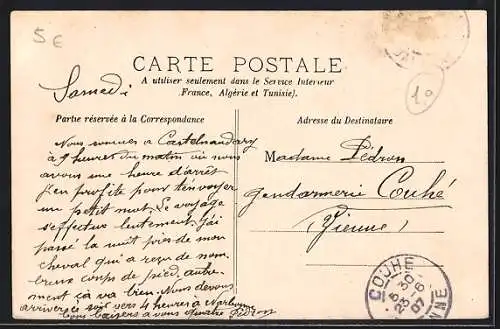 5€
CARTE POSTALE
A utiliser seulement dans le Service Interieur
(France, Algérie et Tunisie).
Samedi
10
Partie réservée à la Correspondance
Adresse du Destinataire
Nous sommes a Castelnaudary
à 9 heures du matin où nous
avons une heure d'arrêt
J'en profite pour t'envoyer
un petit mot. Le voyage
s'effectue lentement. J'ai
passé la nuit près de mon
cheval qui a reçu de nom
breux coups de pied, autre
ment çà va bien. Nous devons
arriver ce soir vers 4 heures à Narbonne
bons baisers a vous quatre Pédron
Madame Pédron
Gendarmerie Couhé
(Vienne)
COUHE
23 - 6
07